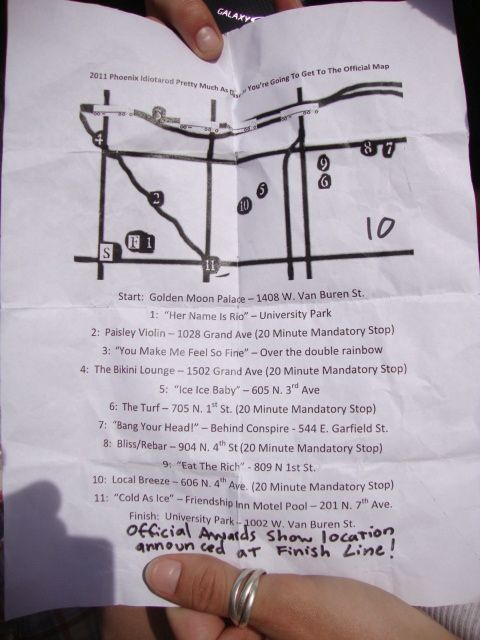 GALAXY
2011 Phoenix Idiotarod Pretty Much As Close You're Going To Get To The Official Map
3
4
9
8
7
6
2
5
10
10
S
F
1
11
Start: Golden Moon Palace – 1408 W. Van Buren St.
1: "Her Name Is Rio" – University Park
2: Paisley Violin – 1028 Grand Ave (20 Minute Mandatory Stop)
3: "You Make Me Feel So Fine" – Over the double rainbow
4: The Bikini Lounge – 1502 Grand Ave (20 Minute Mandatory Stop)
5: "Ice Ice Baby" – 605 N. 3rd Ave
6: The Turf – 705 N. 1st St. (20 Minute Mandatory Stop)
7: "Bang Your Head!" – Behind Conspire - 544 E. Garfield St.
8: Bliss/Rebar – 904 N. 4th St (20 Minute Mandatory Stop)
9: "Eat The Rich" - 809 N 1st St.
10: Local Breeze – 606 N. 4th Ave. (20 Minute Mandatory Stop)
11: "Cold As Ice" – Friendship Inn Motel Pool – 201 N. 7th Ave.
Finish: University Park – 1002 W. Van Buren St.
Official Awards Show location
announced at Finish Line!